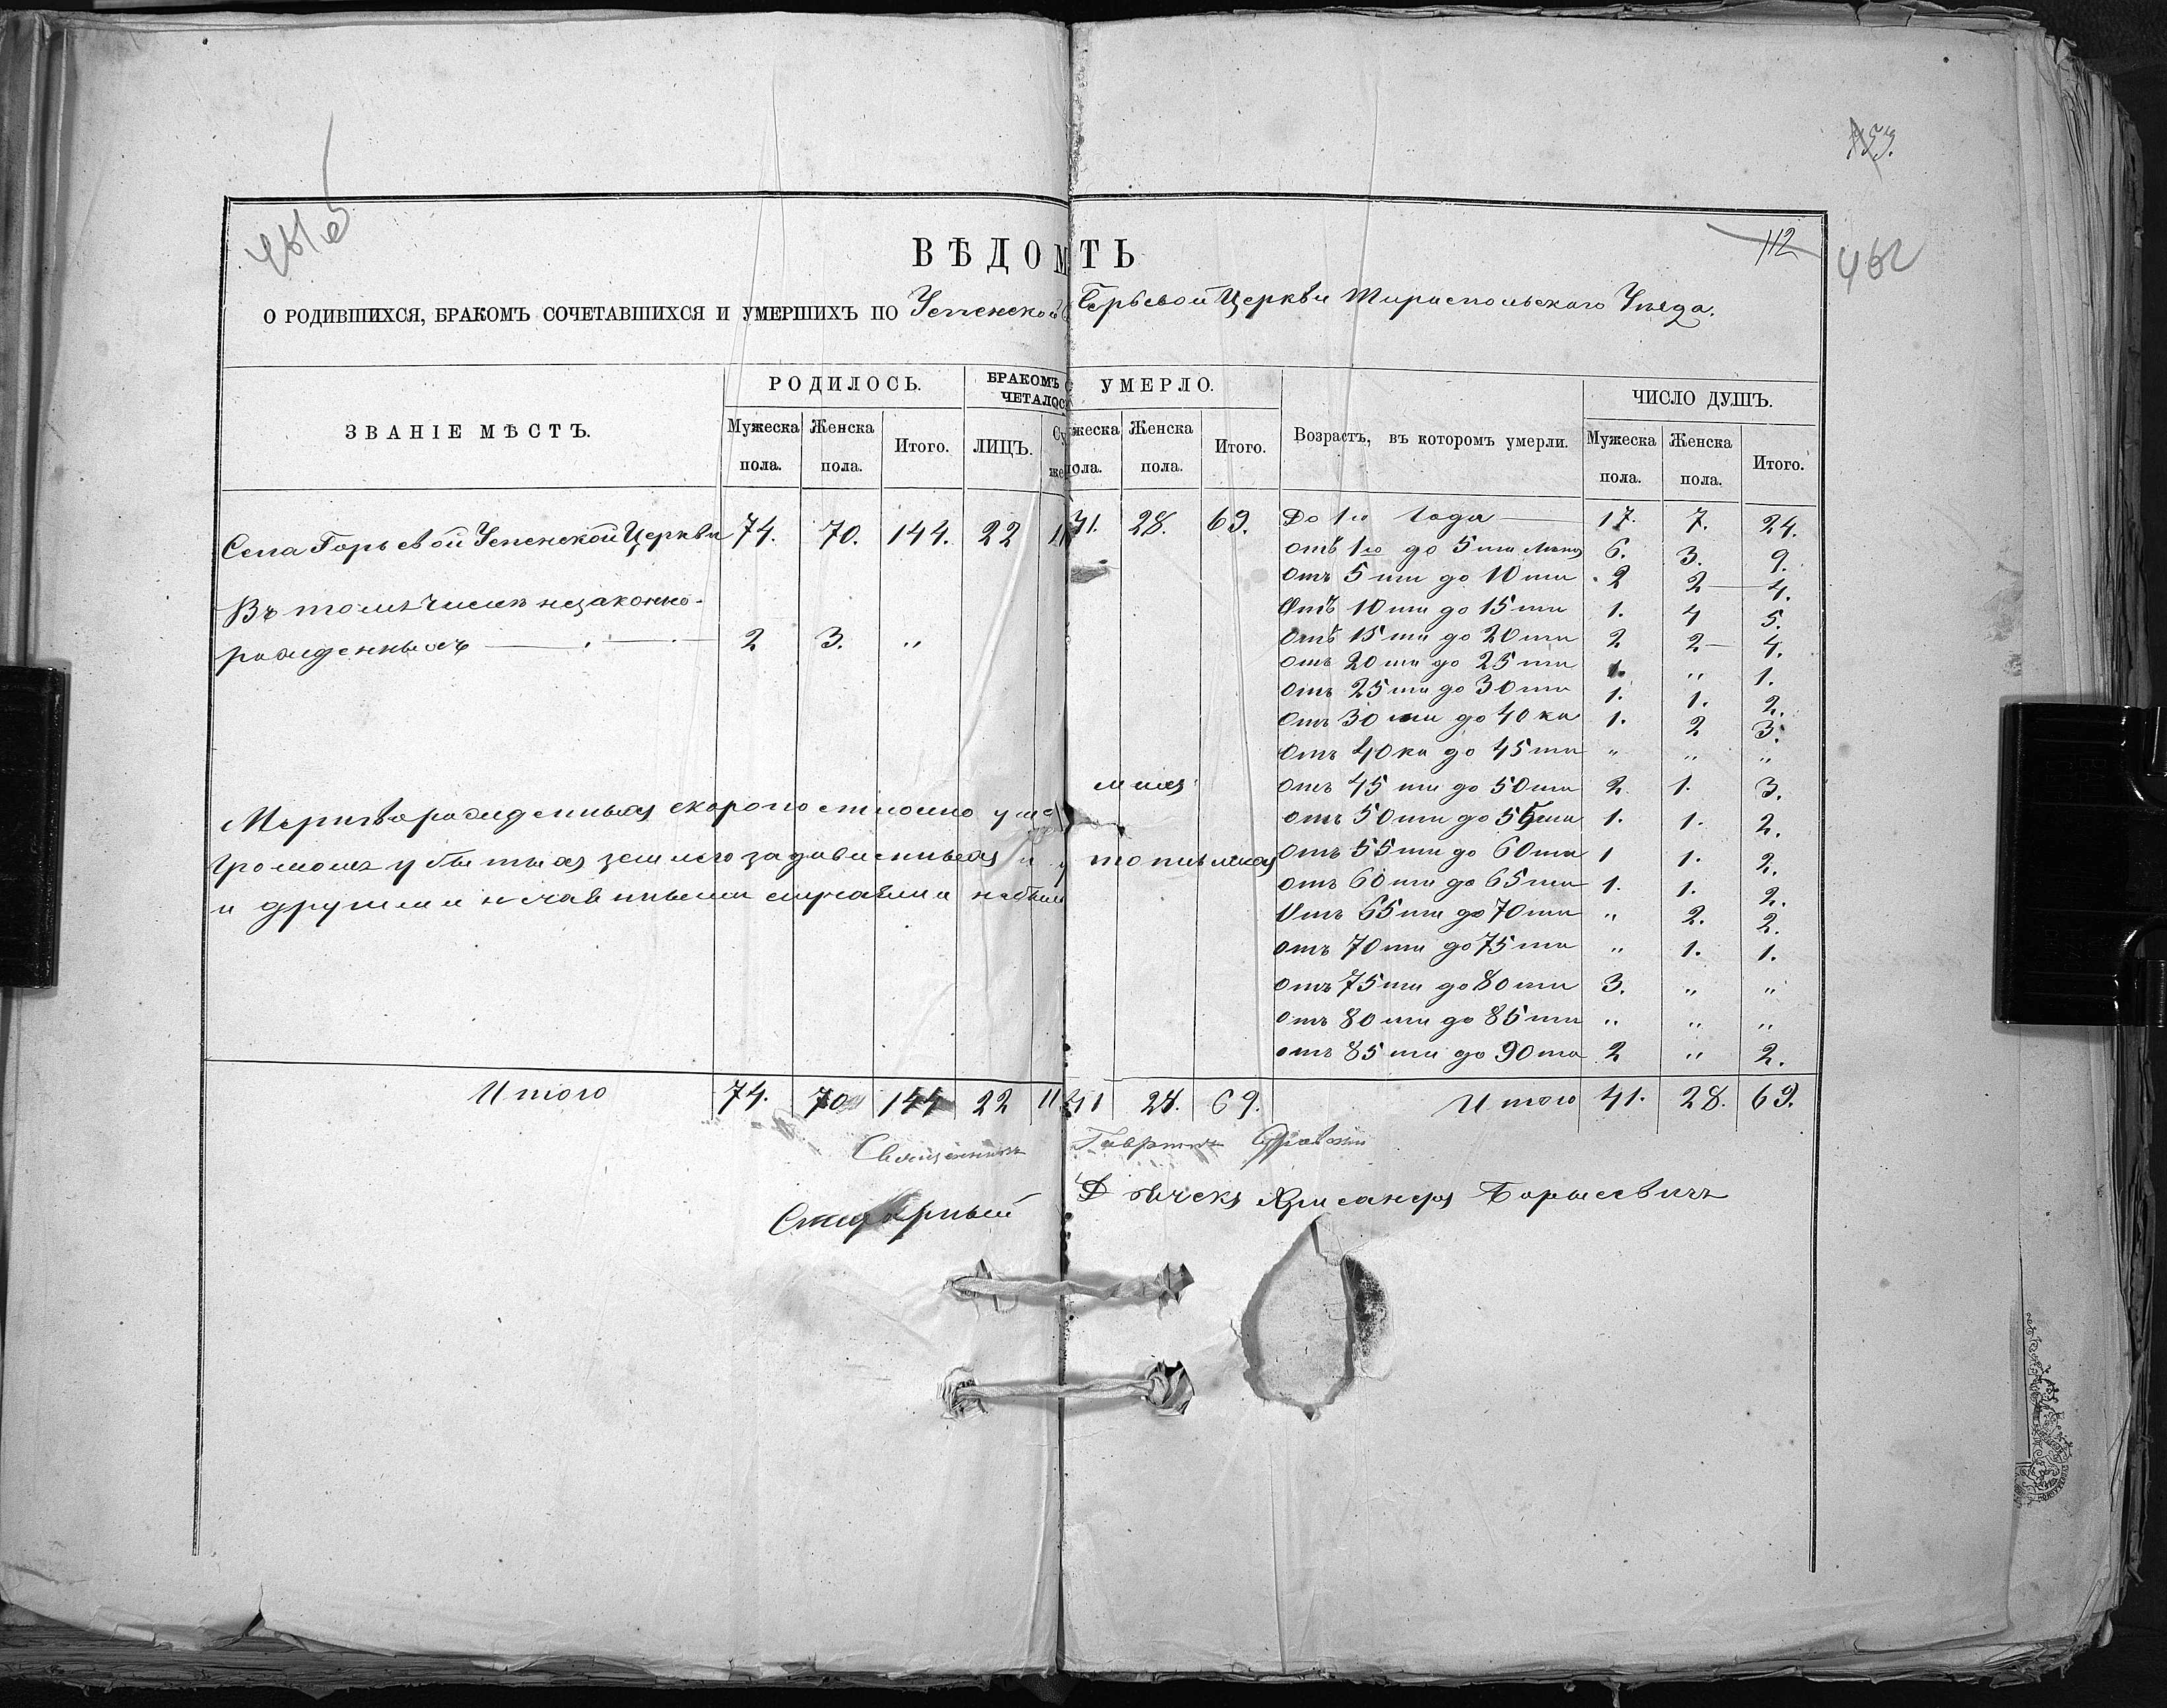 153.
461 об
112
462
ВѢДОМ ТЬ
О РОДИВШИХСЯ, БРАКОМЪ СОЧЕТАВШИХСЯ И УМЕРШИХЪ ПО Успенской Горьевой Церкви Тираспольскаго Уѣзда.
ЗВАНІЕ МѢСТЪ.
РОДИЛОСЬ.
БРАКОМЪ С
ЧЕТАЛОСЬ
УМЕРЛО.
Возрастъ, въ которомъ умерли.
ЧИСЛО ДУШЪ.
Мужеска пола. Женска пола. Итого. ЛИЦЪ. Су же жеска пола. Женска пола. Итого. Мужеска пола. Женска пола. Итого.
Села Горьевой Успенской Церкви 74. 70. 144. 22 11 41. 28. 69.
Въ томъ числѣ незаконно-
рожденныхъ 2 3. "
До 1го года 17. 7. 24.
отъ 1го до 5ти лѣтъ 6. 3. 9.
отъ 5ти до 10ти 2 2 4.
Отъ 10ти до 15ти 1. 4 5.
отъ 15ти до 20ти 2 2 4.
отъ 20ти до 25ти 1. " 1.
отъ 25ти до 30ти 1. 1. 2.
отъ 30ти до 40ка 1. 2 3.
отъ 40ка до 45ти " " "
отъ 45ти до 50ти 2 1. 3.
отъ 50ти до 55ти 1. 1. 2.
отъ 55ти до 60ти 1 1. 2.
отъ 60ти до 65ти 1. 1. 2.
Отъ 65ти до 70ти " 2. 2.
отъ 70ти до 75ти " 1. 1.
отъ 75ти до 80ти 3. " "
отъ 80ти до 85ти " " "
отъ 85ти до 90та 2 " 2.
Мертворожденныхъ скоропостижно умершихъ
громомъ убитыхъ землею задавленныхъ и утопшихъ
и другими нечаянными случаями небыло
Итого 74. 70 144 22 11 41 28. 69. Итого 41. 28. 69.
Священникъ Гавриилъ
Дьячекъ Хрисанфъ Боршевичъ